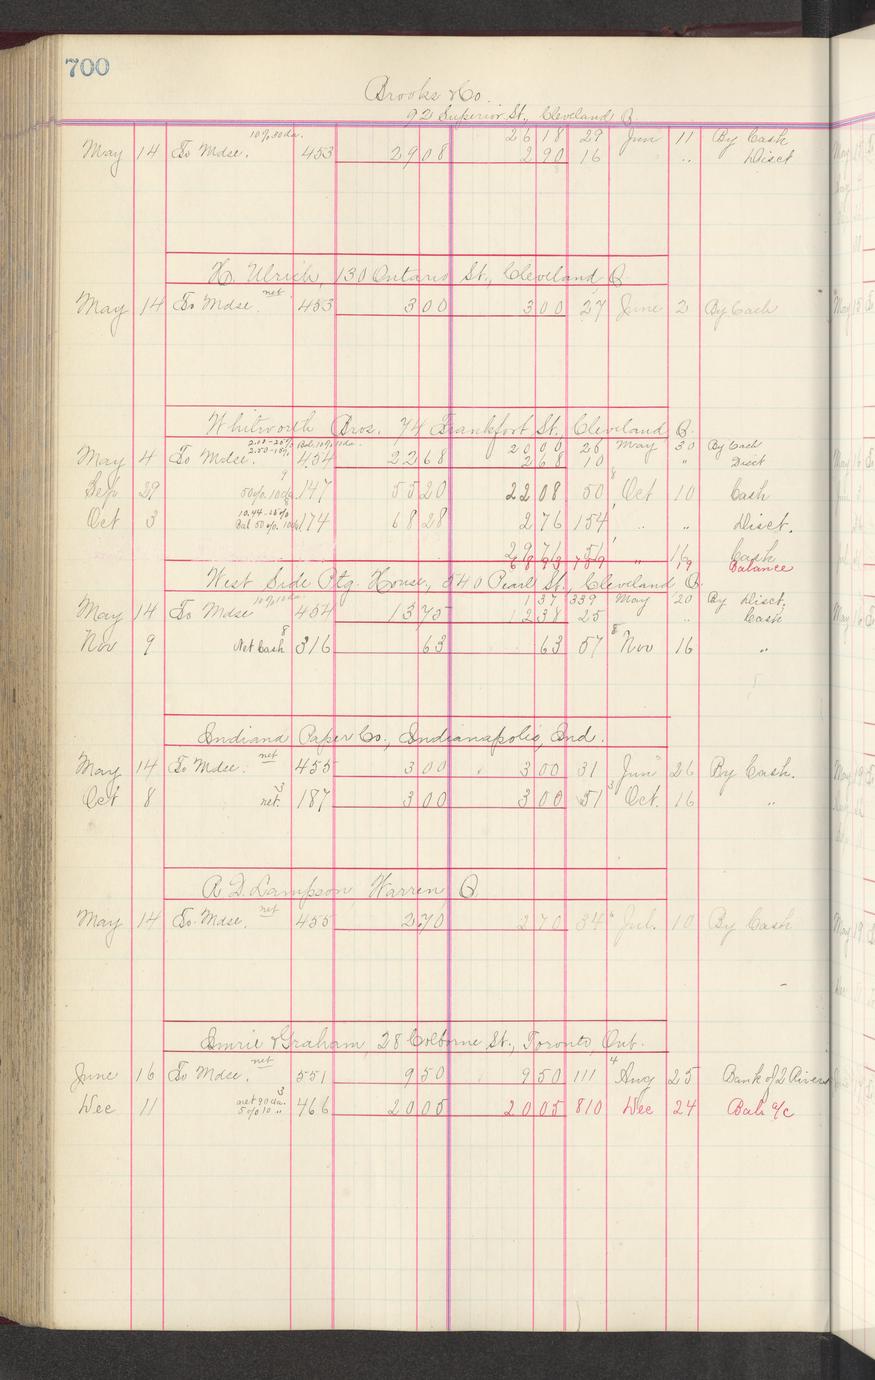 700
Brooks & Co.
92 Superior St., Cleveland O.
10% 30 da. 26 18 29 Jun 11 By Cash
May 14 To Mdse. 453 29 08 2 90 16 " Disct
H. Ulrich, 130 Ontario St., Cleveland O.
May 14 To Mdse. net 453 3 00 3 00 27 June 2 By Cash
Whitworth Bros. 74 Frankfort St., Cleveland O.
2.18-25% Bal. 10% 10 da. 20 00 26 May 30 By Cash
May 4 To Mdse. 2.50-15% 454 22 68 2 68 10 " Disct
Sep. 29 5% 10 da 147 55 20 22 08 50 Oct 10 Cash
Oct 3 10.44-25% Bal 5% 10 da 174 68 28 2 76 154 " " Disct.
29 71 51 " 16 Cash
68 93 789 19 Balance
West Side Ptg. House, 540 Pearl St., Cleveland O.
10% 10 da. 1 37 339 May 20 By Disct.
May 14 To Mdse 454 13 75 12 38 25 " Cash
Nov 9 Net Cash 316 63 63 57 Nov 16 "
Indiana Paper Co., Indianapolis, Ind.
May 14 To Mdse. net 455 3 00 3 00 31 Jun 26 By Cash.
Oct 8 net. 187 3 00 3 00 51 Oct. 16 "
A. D. Lampson, Warren, O.
May 14 To Mdse. net 455 2 70 2 70 34 Jul. 10 By Cash
Imrie & Graham, 28 Colborne St., Toronto, Ont.
June 16 To Mdse. net 551 9 50 9 50 111 Aug 25 Bank of 2 Rivers
Dec 11 net 90 da. 5% 10 " 466 20 05 20 05 810 Dec 24 Bal a/c